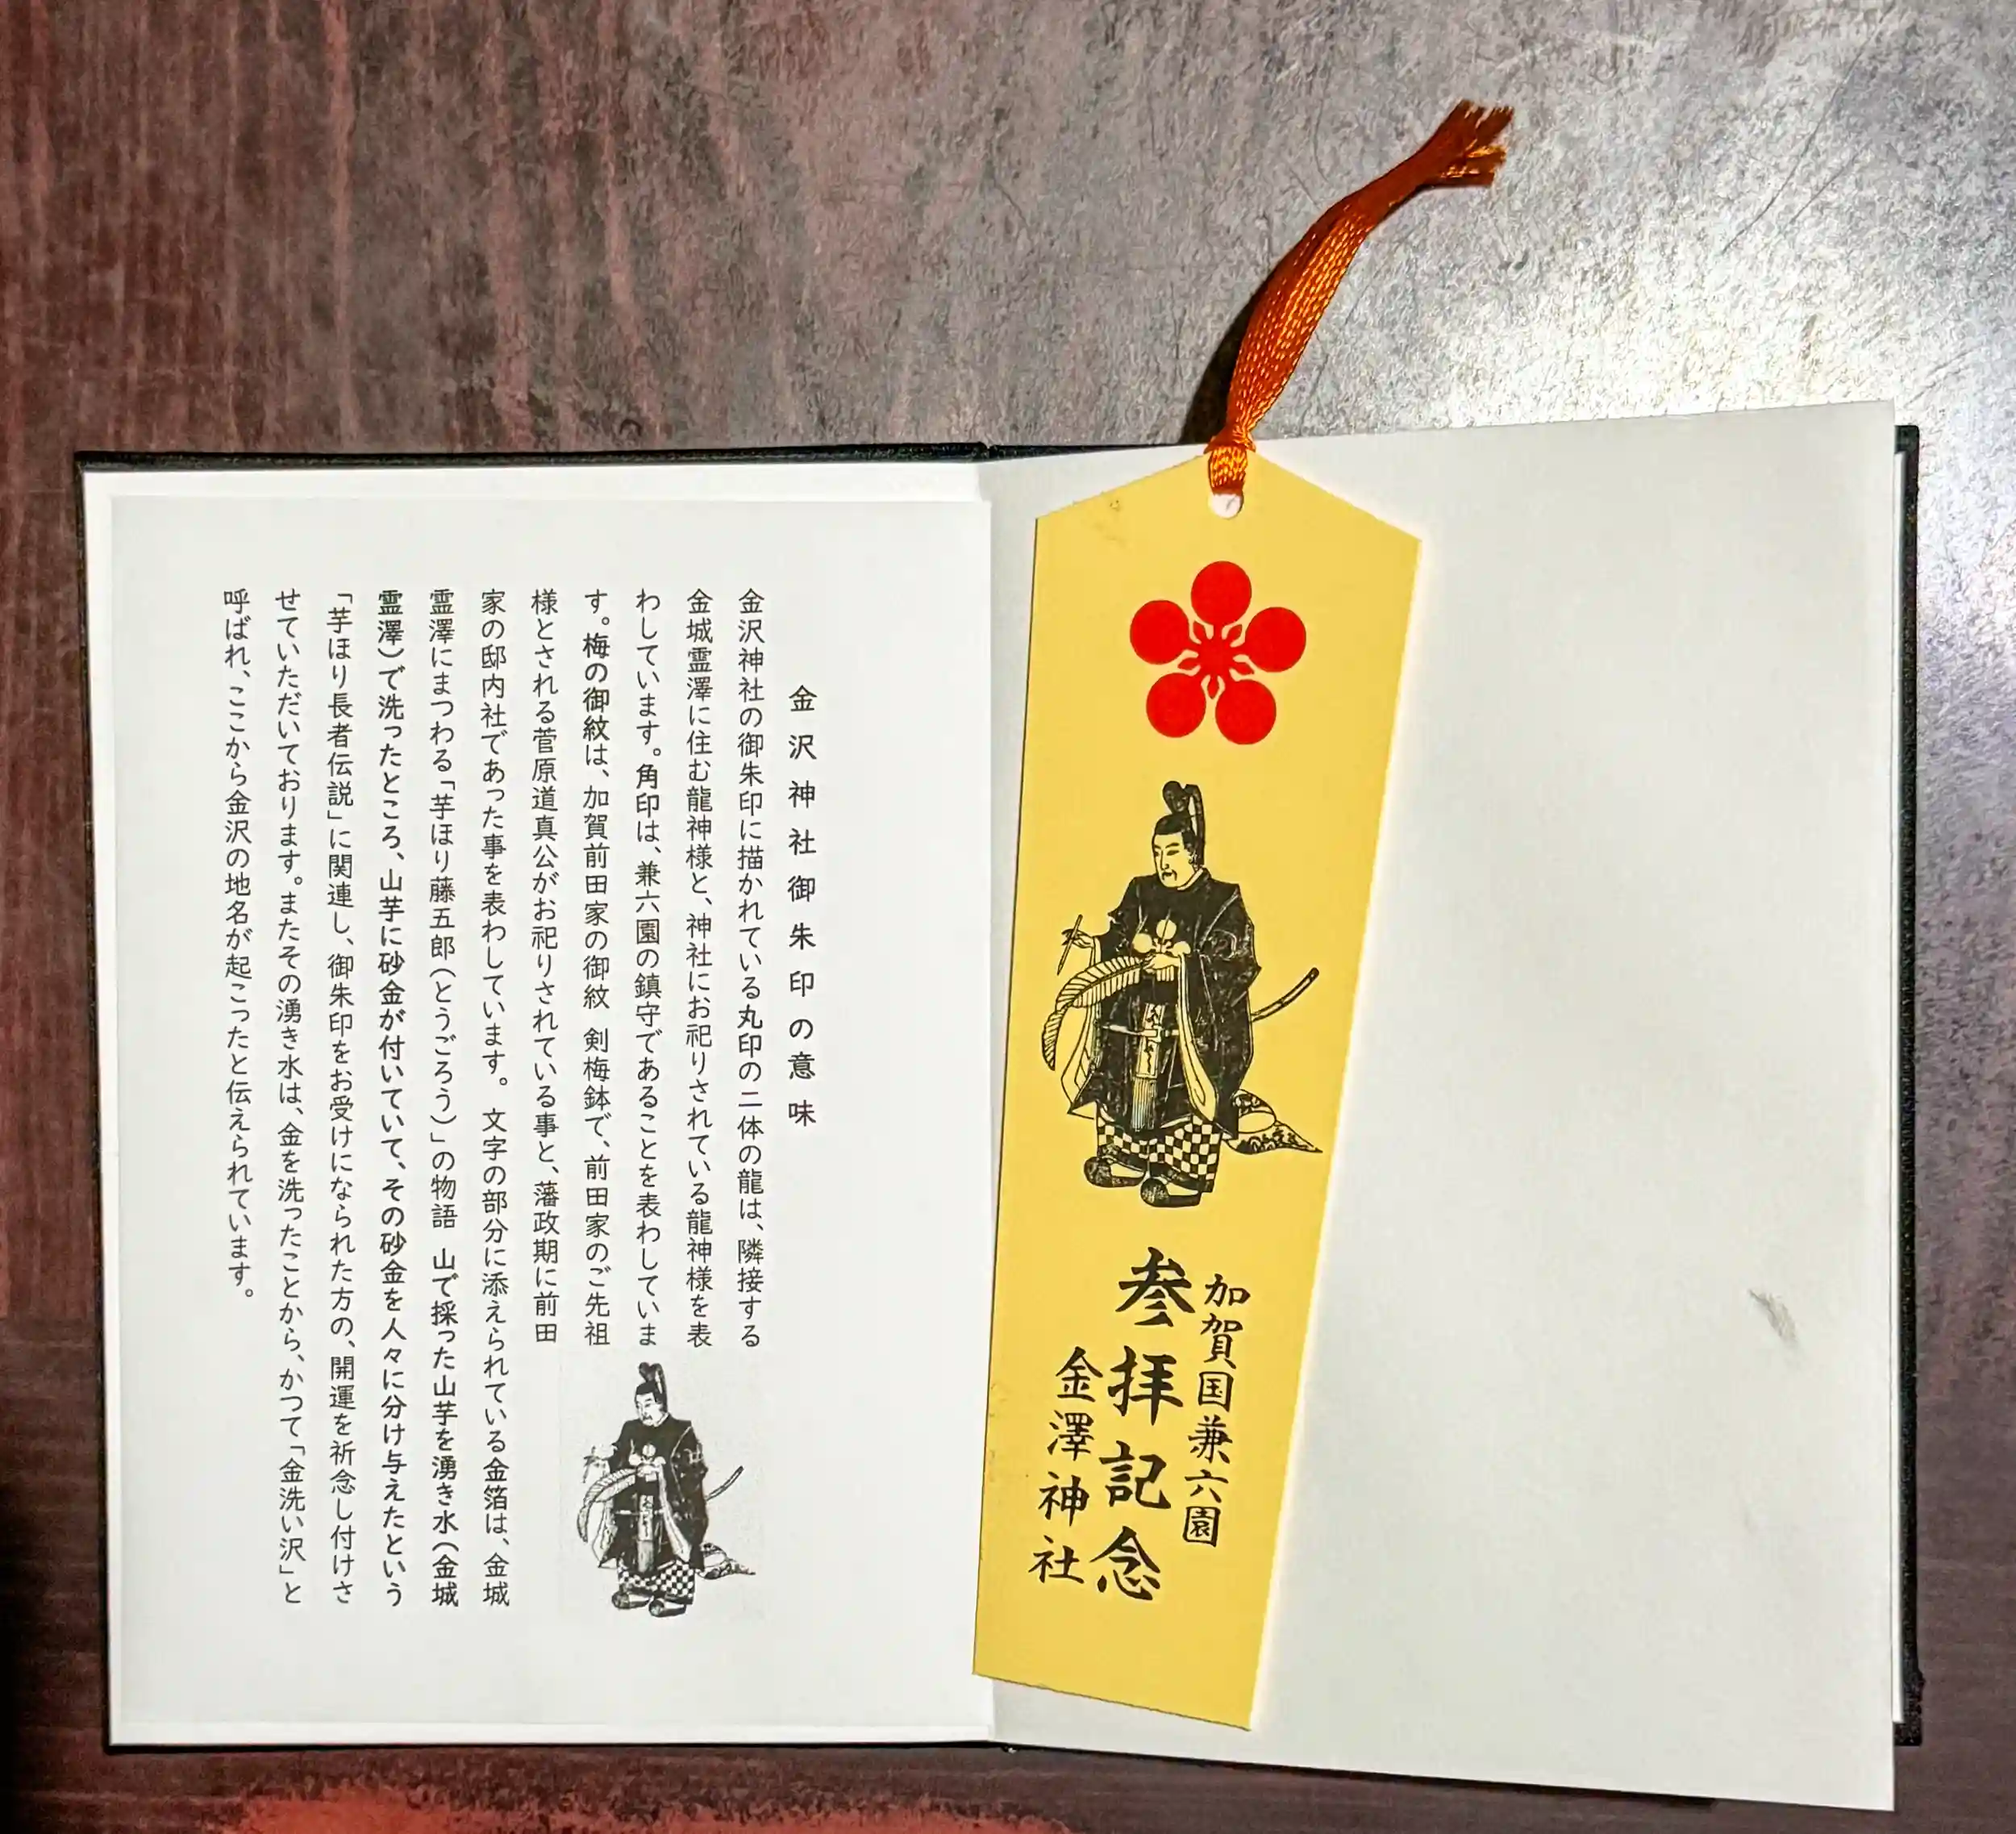 金沢神社御朱印の意味
金沢神社の御朱印に描かれている丸印の二体の龍は、隣接する
金城霊澤に住む龍神様と、神社にお祀りされている龍神様を表
わしています。角印は、兼六園の鎮守であることを表わしていま
す。梅の御紋は、加賀前田家の御紋 剣梅鉢で、前田家のご先祖
様とされる菅原道真公がお祀りされている事と、藩政期に前田
家の邸内社であった事を表わしています。 文字の部分に添えられている金箔は、金城
霊澤にまつわる「芋ほり藤五郎(とうごろう)」の物語 山で採った山芋を湧き水(金城
霊澤)で洗ったところ、山芋に砂金が付いていて、その砂金を人々に分け与えたという
「芋ほり長者伝説」に関連し、御朱印をお受けになられた方の、開運を祈念し付けさ
せていただいております。またその湧き水は、金を洗ったことから、かつて「金洗い沢」と
呼ばれ、ここから金沢の地名が起こったと伝えられています。
加賀国兼六園
参拝記念
金澤神社